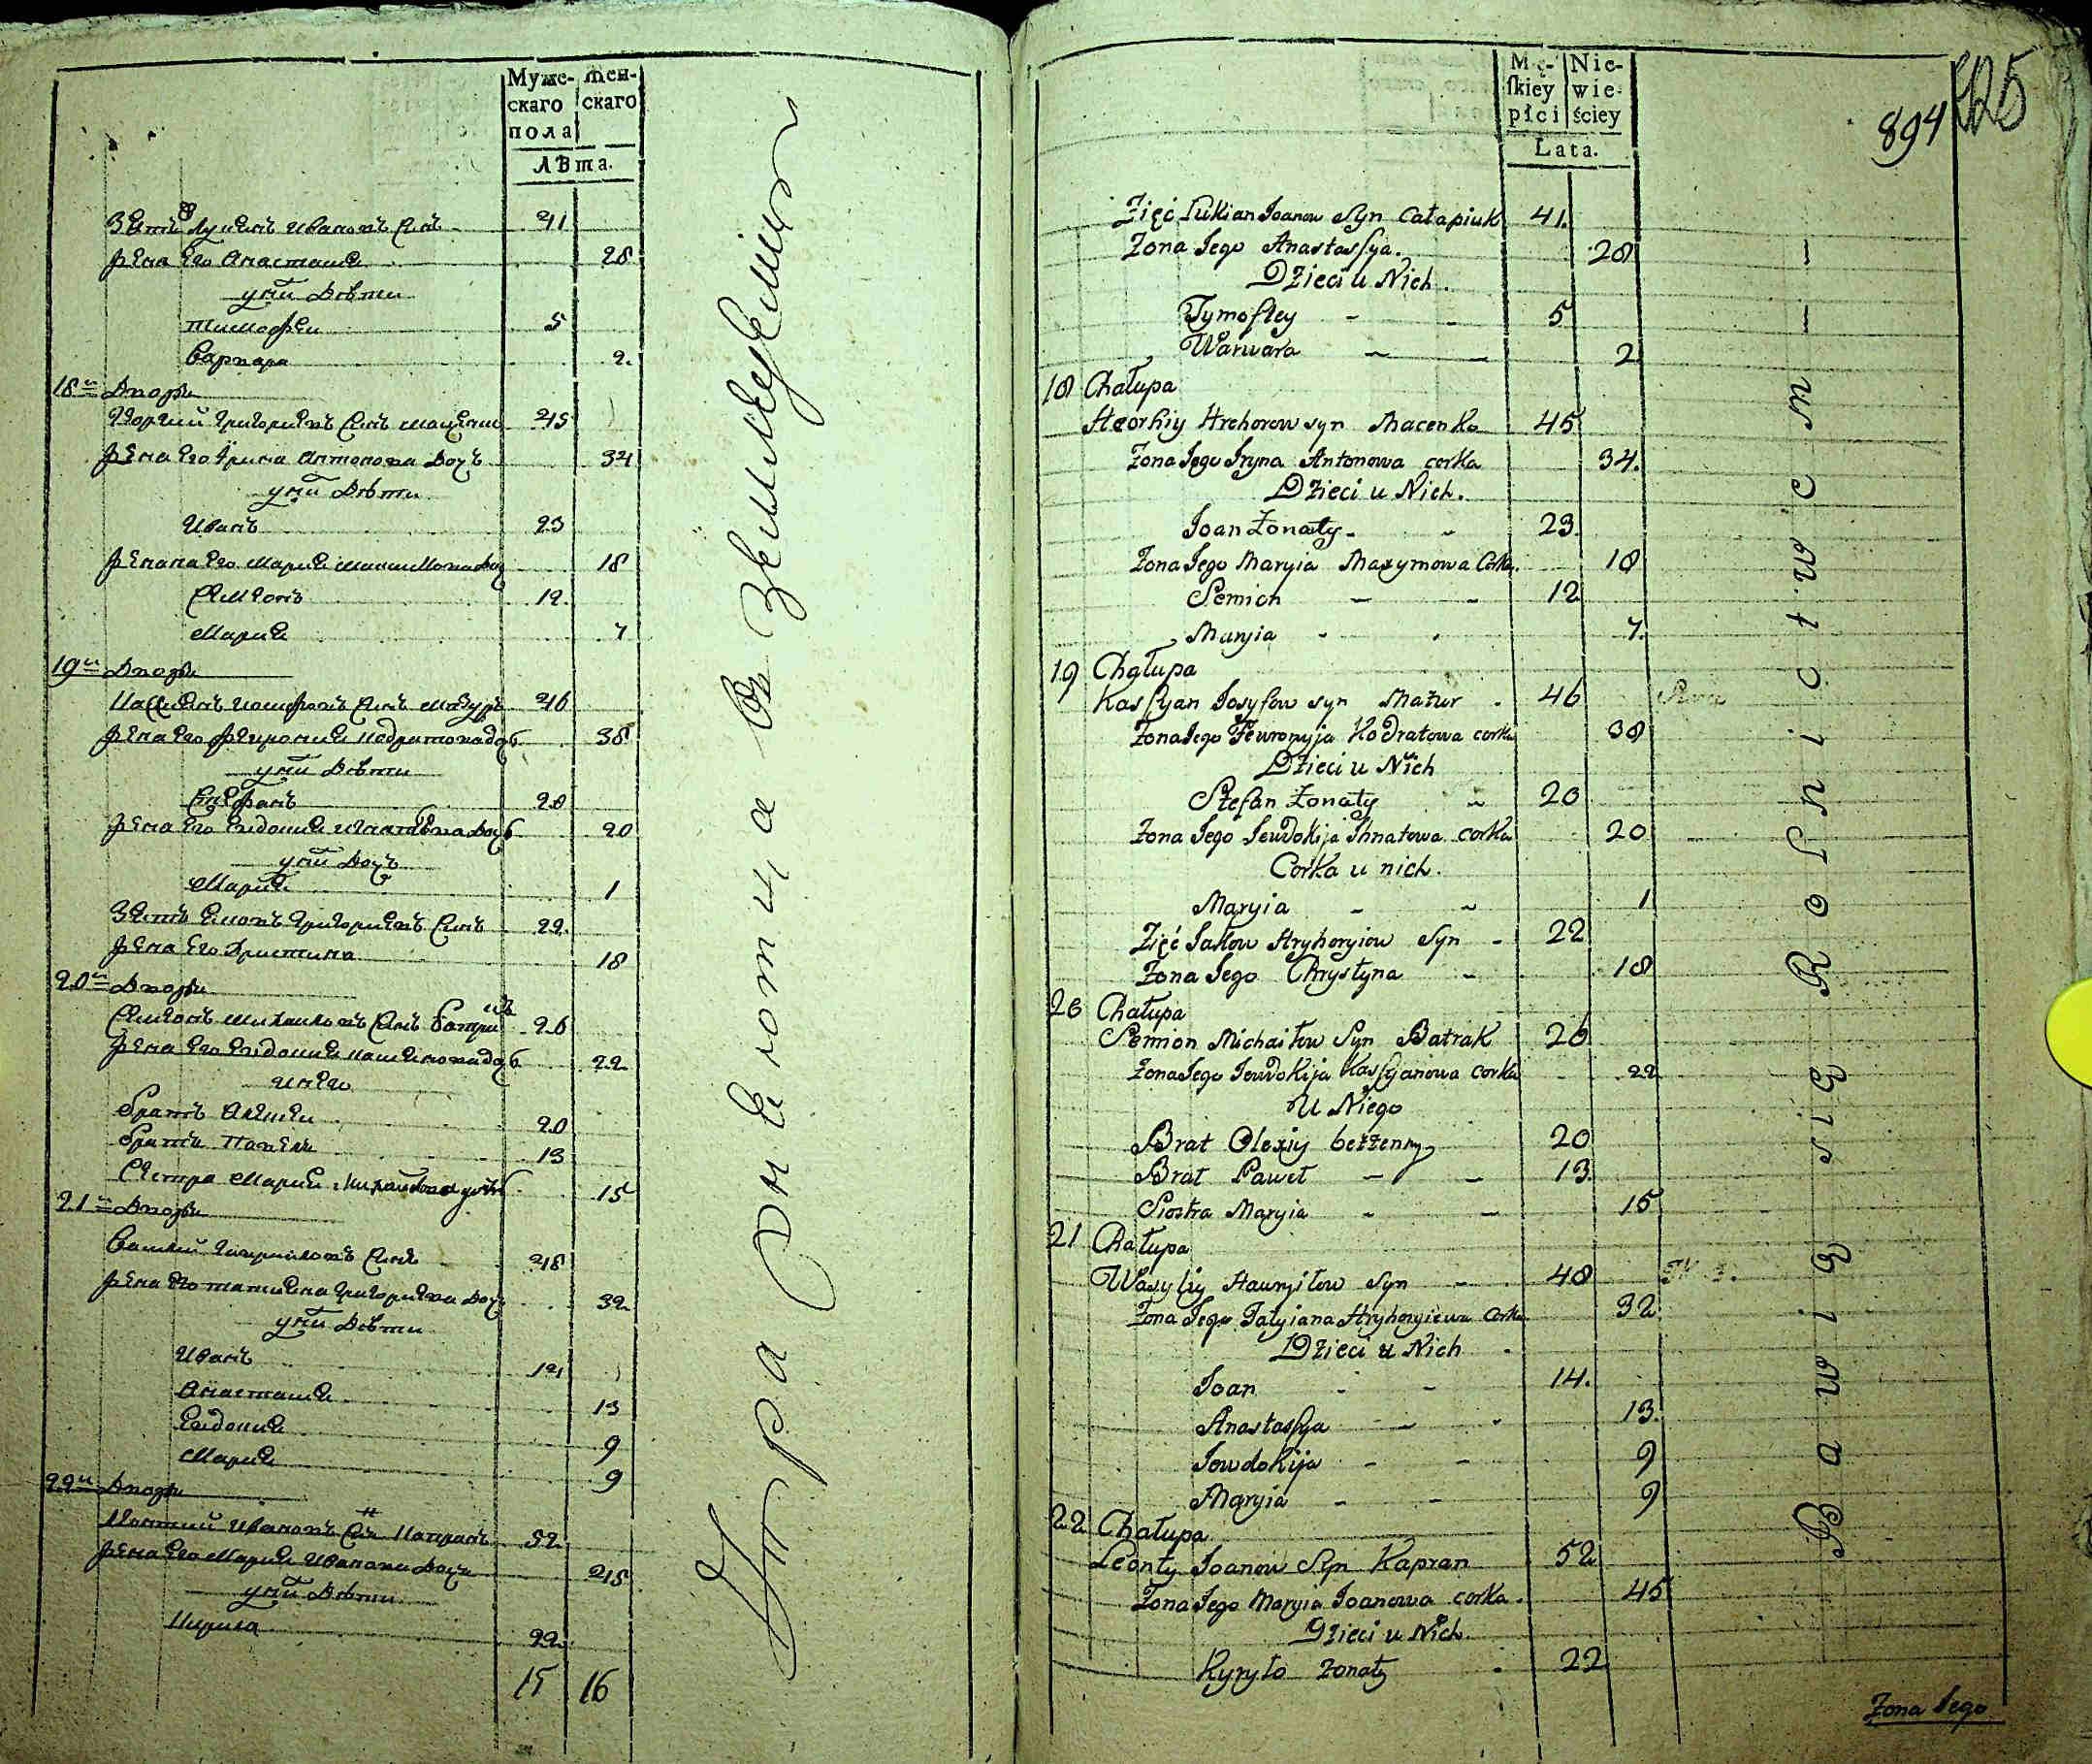 Муже-
скаго
пола
Жен-
скаго
ЛѢта.
Зять Лукьянъ Ивановъ Сынъ 41
Жена Его Анастасия 28
у нихъ Дѣти
Тимофеи 5
Варвара 2
18й Дворъ
Георгий Григориевъ Сынъ Маценко 45
Жена Его Ирина Антонова Дочь 34
у нихъ Дѣти
Иванъ 23
Жена Его Мария Максимова Дочь 18
Семионъ 12
Мария 7
19й Дворъ
Кассианъ Иосифовъ Сынъ Мазуръ 46
Жена Его Феврония Кодратова дочь 38
у нихъ Дѣти
Стефанъ 20
Жена Его Евдокия Игнатьева Дочь 20
у нихъ Дочь
Мария 1
Зять Яковъ Григориевъ Сынъ 22
Жена Его Христина 18
20й Дворъ
Семионъ Михаиловъ Сынъ Батракъ 26
Жена Его Евдокия Касиянова дочь 22
у него
Братъ Алексеи 20
Братъ Павелъ 13
Сестра Мария Михайлова дочь 15
21й Дворъ
Василий Гавриловъ Сынъ 48
Жена Его Татияна Григориева Дочь 32
у нихъ Дѣти
Иванъ 14
Анастасия 13
Евдокия 9
Мария 9
22й Дворъ
Леонтий Ивановъ Сынъ Капранъ 52
Жена Его Мария Иванова Дочь 45
у нихъ Дѣти
Кирила 22
15 16
Упражняются в земледелии
Mę-
skiey
płci
Nie-
wie-
ściey
Lata.
894
425
Zięć Łukian Joanow Syn Całapiuk 41.
Zona Jego Anastassya. 28
Dzieci u Nich.
Tymofiey 5
Warwara 2
18 Chałupa
Heorhiy Hrehorow syn Macenko 45
Zona Jego Iryna Antonowa corka 34.
Dzieci u Nich.
Joan Zonaty 23
Zona Jego Maryia Maxymowa Corka 18
Semion 12
Maryia 7.
19 Chałupa
Kassyan Josyfow syn Mazur 46
Zona Jego Fewronyja Kodratowa corka 38
Dzieci u Nich
Stefan Zonaty 20
Zona Jego Jewdokija Ihnatowa corka 20
Corka u nich.
Maryia 1
Zięć Jakow Hryhoryiow Syn 22
Zona Jego Chrystyna 18
20 Chałupa
Semion Michaiłow Syn Batrak 26
Zona Jego Jewdokija Kassyianowa corka 22
U Niego
Brat Olexiy bezzenny 20
Brat Paweł 13
Siostra Maryia 15
21 Chałupa
Wasyliy Hawryłow Syn 48
Zona Jego Tatyiana Hryhoryiewa Corka 32
Dzieci u Nich
Joan 14.
Anastassya 13.
Jewdokija 9
Maryia 9
22 Chałupa
Leonty Joanow Syn Kapran 52
Zona Jego Maryia Joanowa corka 45
Dzieci u Nich.
Kyryło Zonaty 22
Bawią się Rolnictwem
Zona Jego